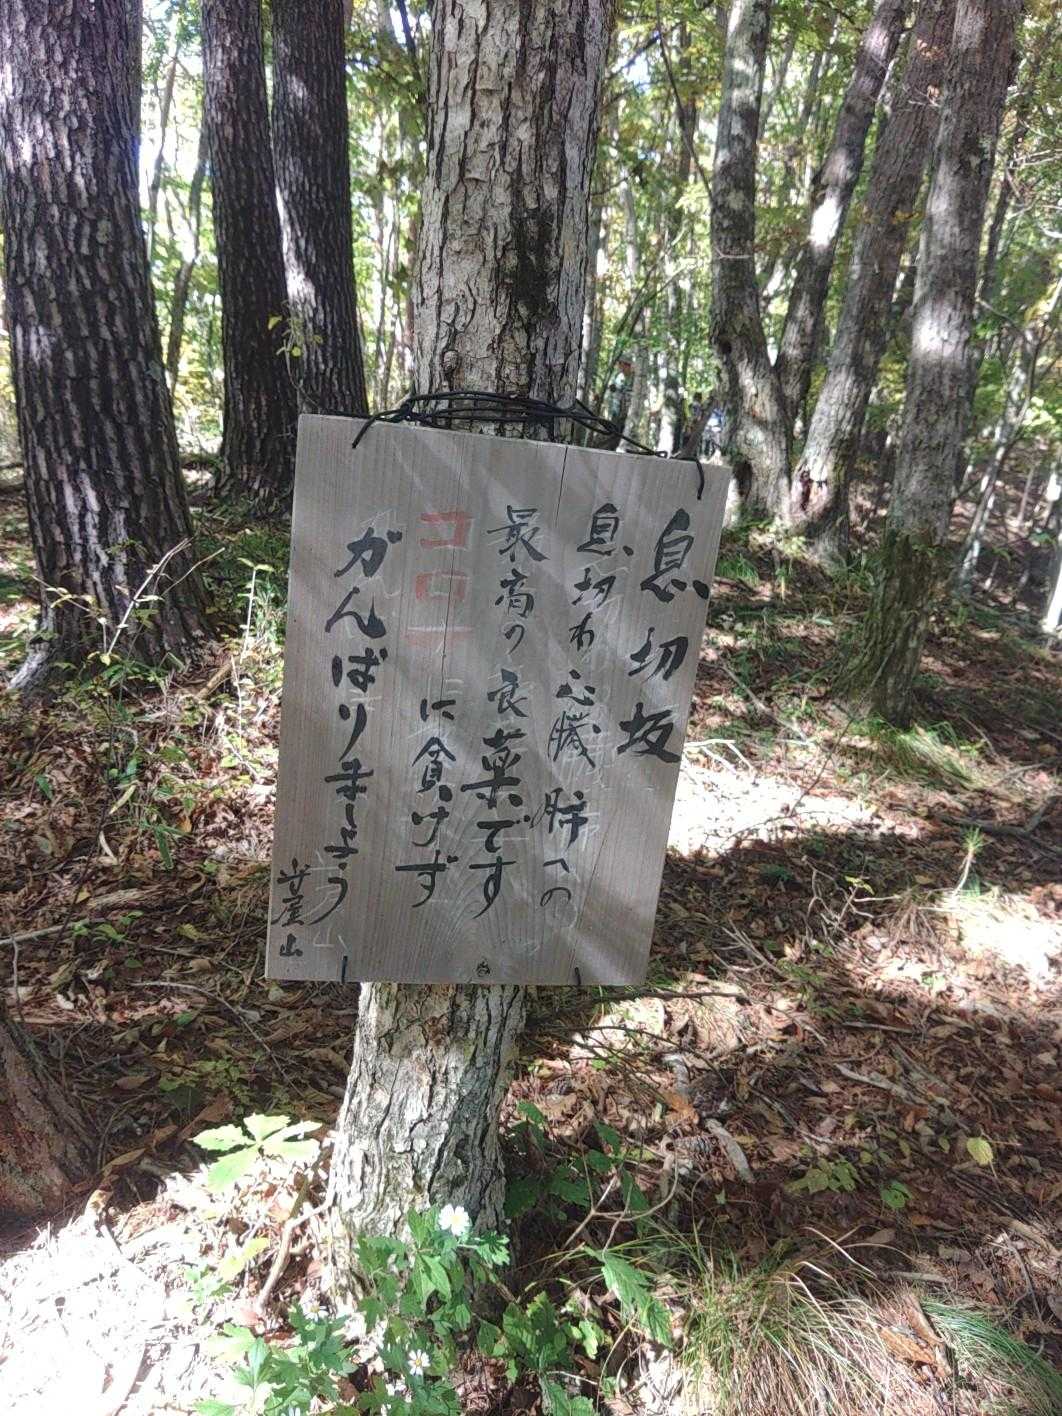 息切坂
息切れ心臓肺への
最高の良薬です
コロナに負けず
がんばりましょう